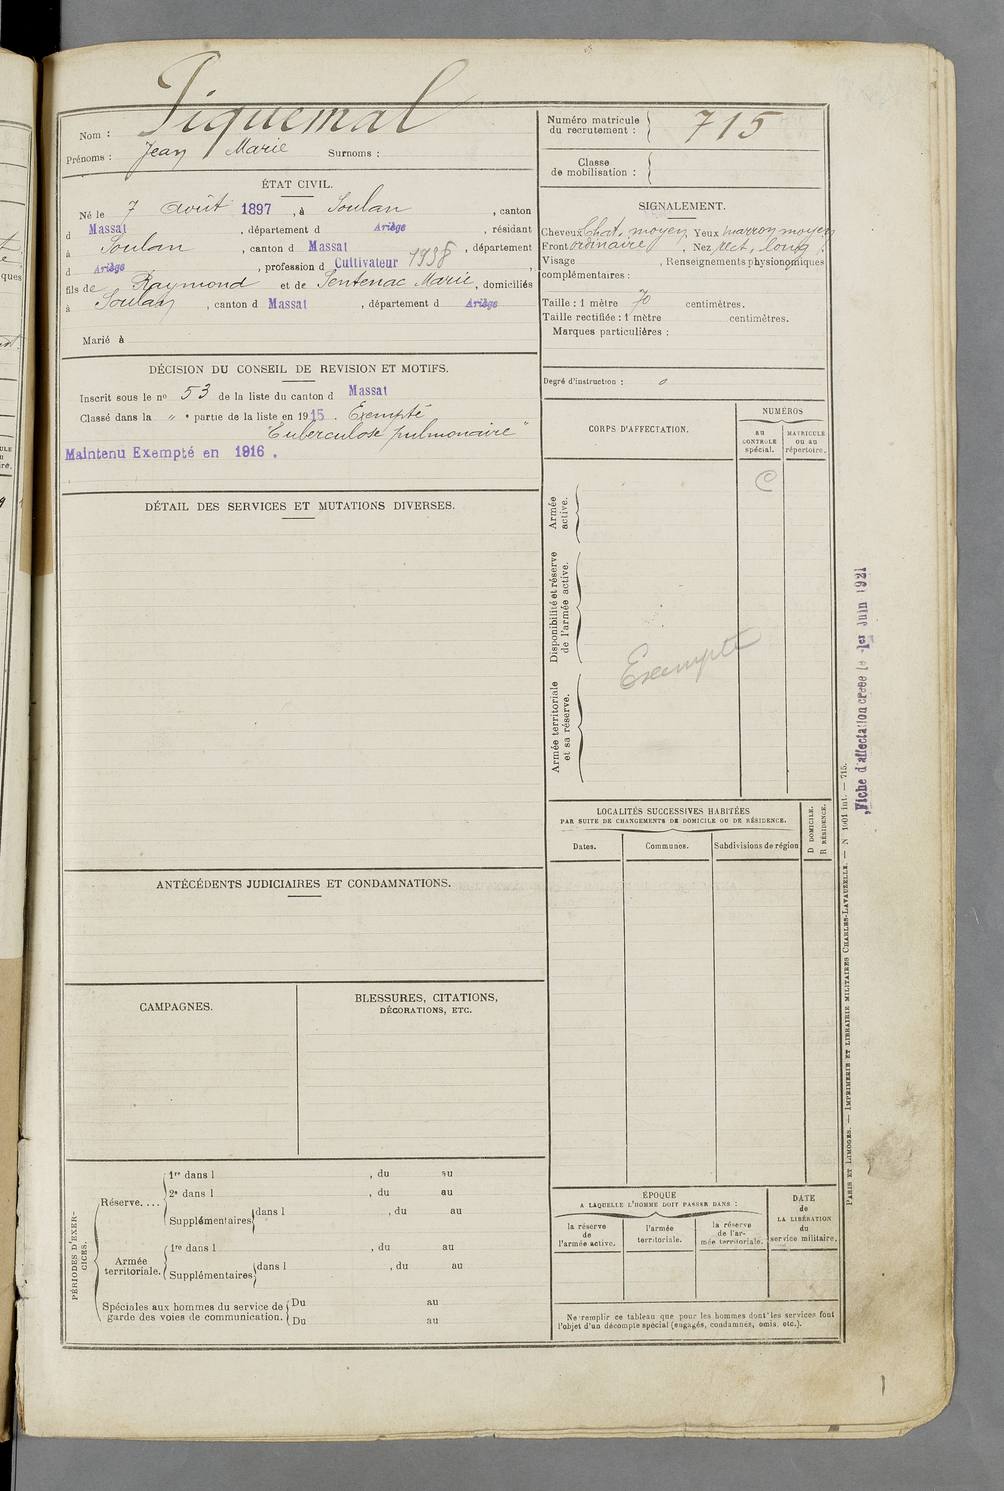 Nom : Piquemal
Prénoms : Jean Marie Surnoms :
ÉTAT CIVIL.
Né le 7 Août 1897, à Soulan, canton
d Massat, département d Ariège, résidant
à Soulan, canton d Massat, département
d Ariège, profession d Cultivateur 1938,
fils de Raymond et de Sentenac Marie, domiciliés
à Soulan, canton d Massat, département d Ariège
Marié à
DÉCISION DU CONSEIL DE REVISION ET MOTIFS.
Inscrit sous le no 53 de la liste du canton d Massat
Classé dans la " e partie de la liste en 1915. Exempté
"Tuberculose pulmonaire"
Maintenu Exempté en 1916.
DÉTAIL DES SERVICES ET MUTATIONS DIVERSES.
ANTÉCÉDENTS JUDICIAIRES ET CONDAMNATIONS.
CAMPAGNES.
BLESSURES, CITATIONS,
DÉCORATIONS, ETC.
PÉRIODES D'EXER-
CICES.
Réserve....
1re dans l , du au
2e dans l , du au
Supplémentaires dans l , du au
Armée
territoriale.
1re dans l , du au
Supplémentaires dans l , du au
Spéciales aux hommes du service de
garde des voies de communication.
Du au
Du au
Numéro matricule
du recrutement : 715
Classe
de mobilisation :
SIGNALEMENT.
Cheveux Chat. moyen, Yeux marron moyen
Front ordinaire, Nez rect. long;
Visage , Renseignements physionomiques
complémentaires :
Taille : 1 mètre 70 centimètres.
Taille rectifiée : 1 mètre centimètres.
Marques particulières :
Degré d'instruction : 0
CORPS D'AFFECTATION.
NUMÉROS
au
CONTROLE
spécial.
MATRICULE
ou au
répertoire.
C
Armée
active.
Disponibilité et réserve
de l'armée active.
Armée territoriale
et sa réserve.
Exempté
LOCALITÉS SUCCESSIVES HABITÉES
PAR SUITE DE CHANGEMENTS DE DOMICILE OU DE RÉSIDENCE.
Dates.
Communes.
Subdivisions de région
D DOMICILE.
R RÉSIDENCE.
ÉPOQUE
A LAQUELLE L'HOMME DOIT PASSER DANS :
la réserve
de
l'armée active.
l'armée
territoriale.
la réserve
de l'ar-
mée territoriale.
DATE
de
LA LIBÉRATION
du
service militaire.
Ne remplir ce tableau que pour les hommes dont les services font
l'objet d'un décompte spécial (engagés, condamnés, omis, etc.).
PARIS ET LIMOGES. — IMPRIMERIE ET LIBRAIRIE MILITAIRES CHARLES-LAVAUZELLE. — N 1001 int. — 715.
Fiche d'affectation créée le 1er Juin 1921